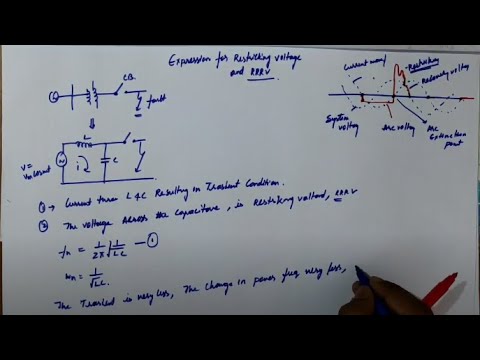 Expression for Restriking Voltage
and RRRV
CB
fault
G
L
C
i
V=
Vm cosωt
Current wave
Restriking
Recovery voltage
System
voltage
Arc voltage
Arc
Extinction
point
① → Current thru L & C Resulting in Transient Condition.
② The Voltage Across the Capacitance, is Restriking voltage, RRRV
fn = 1/2π √1/LC — ①
wn = 1/√LC.
The Transient is very less, The Change in power freq very less,